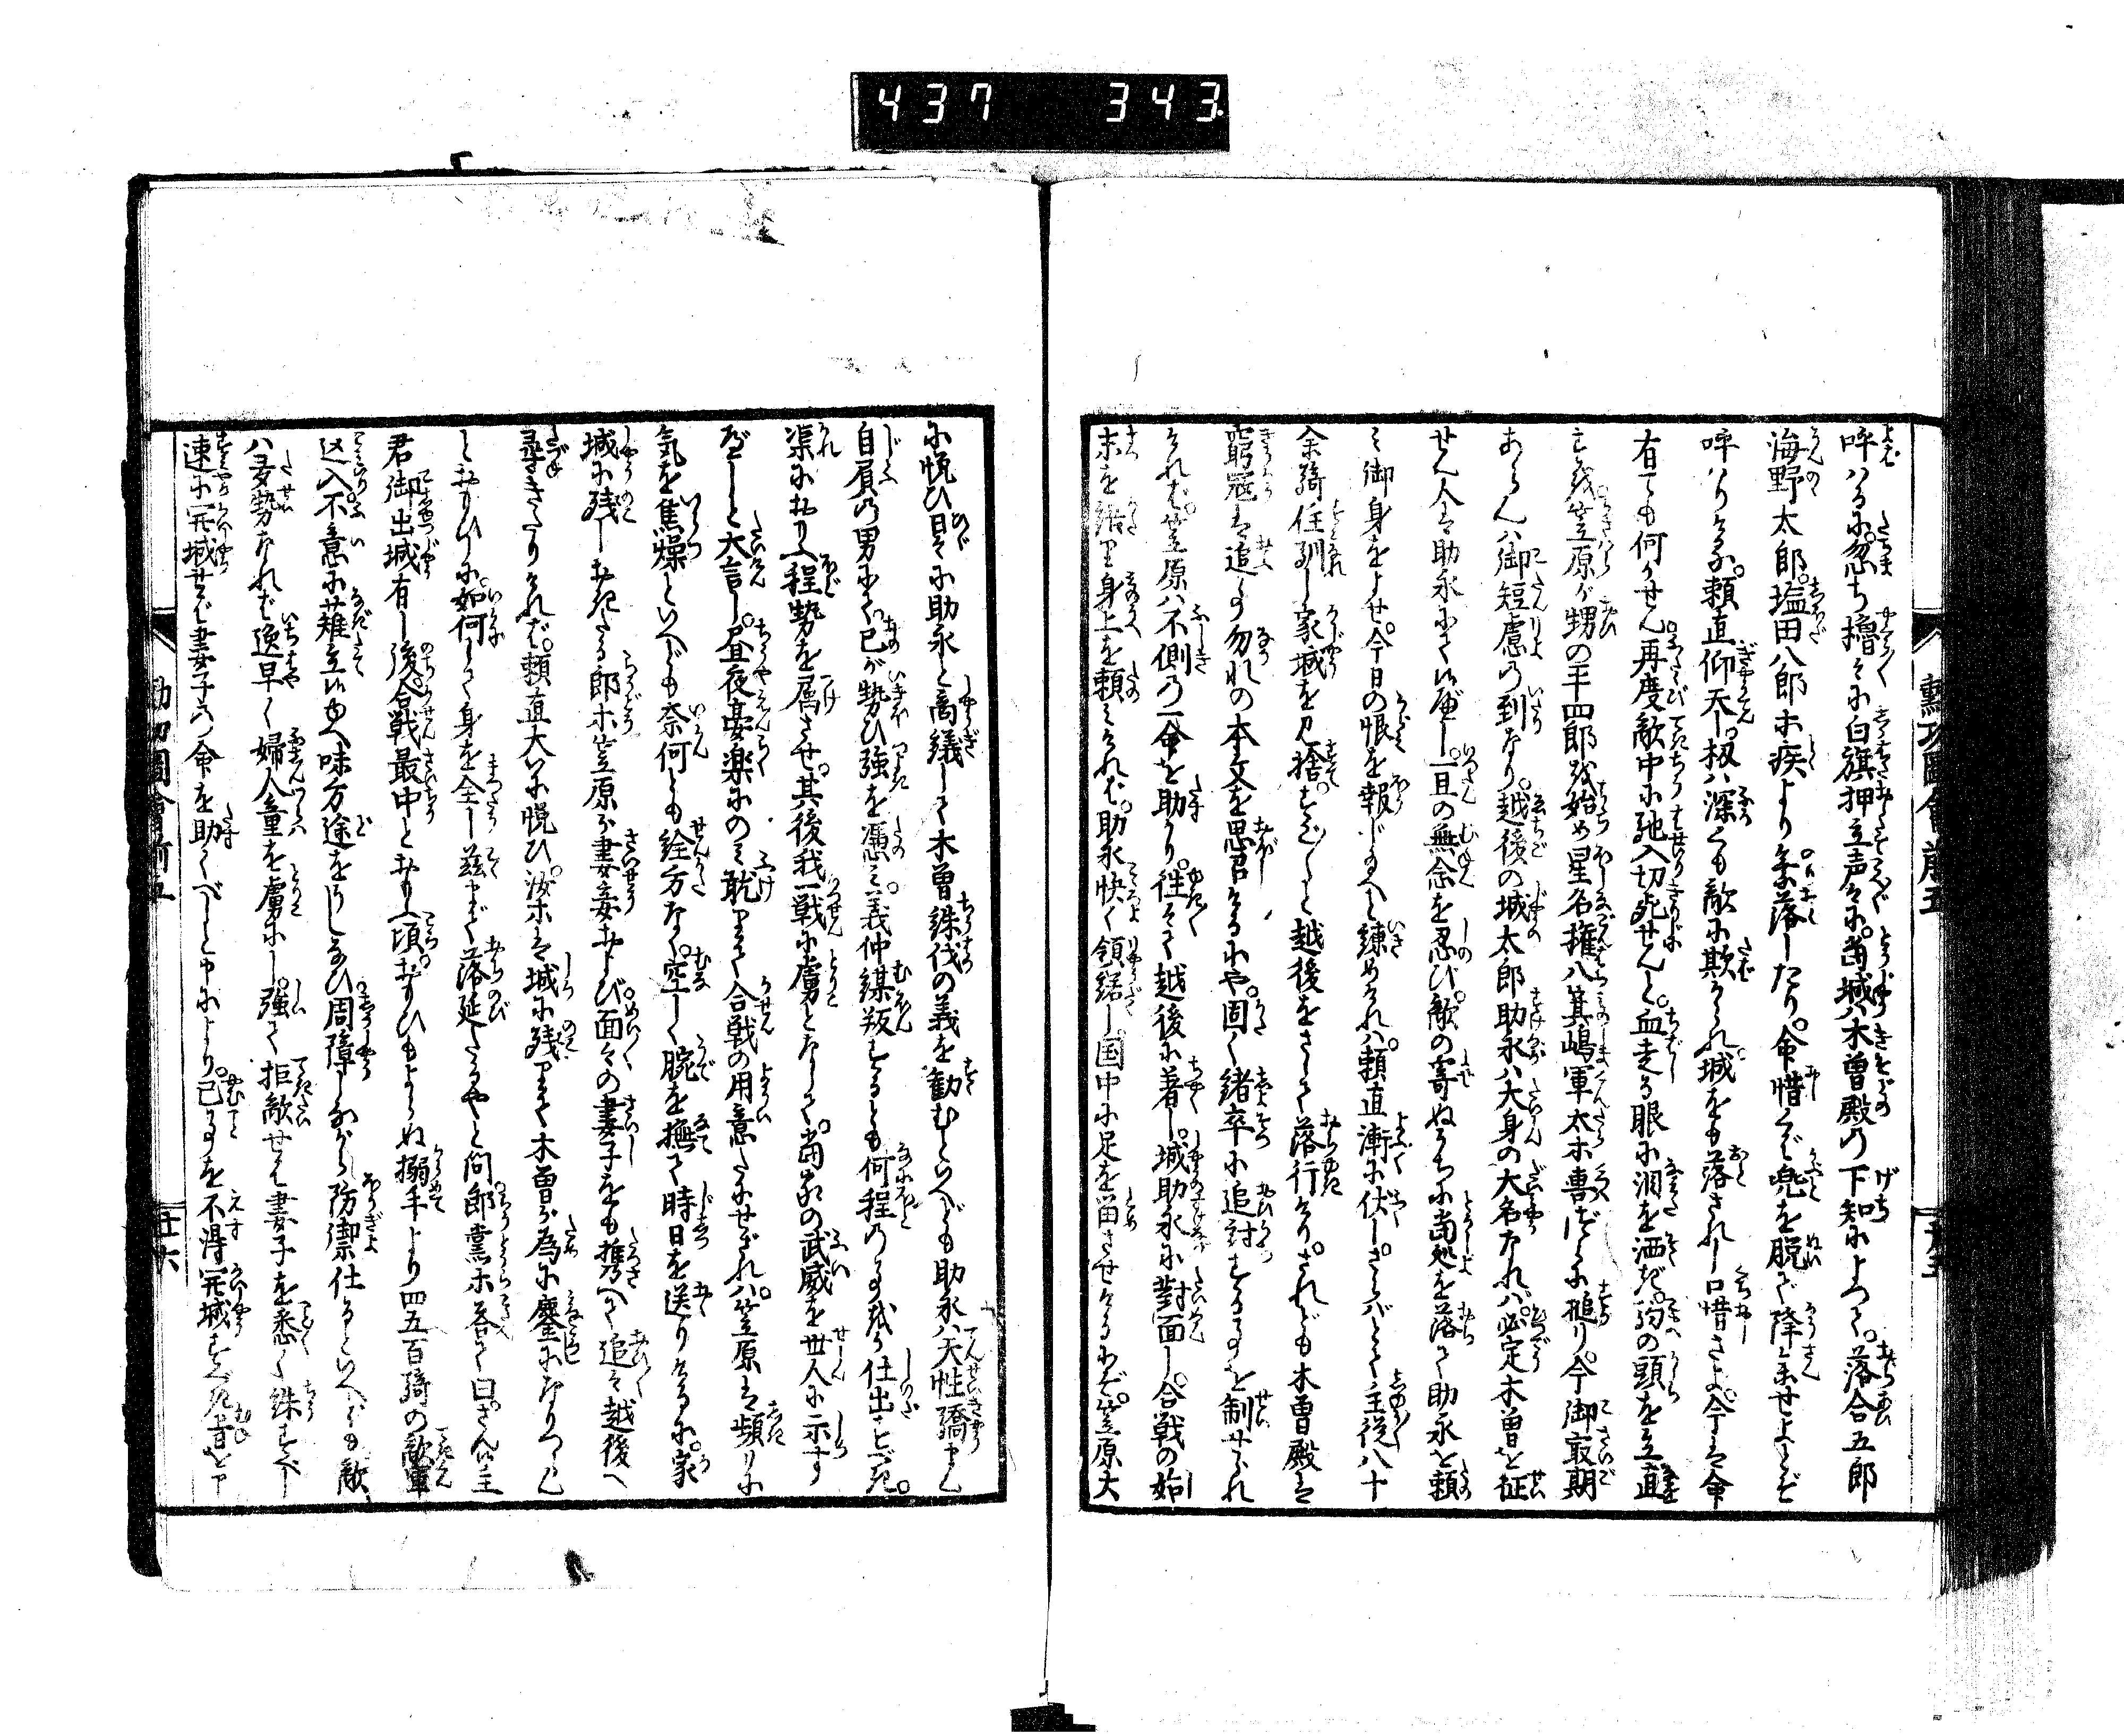 437 343
呼はるに。忽ち櫓々に白旗押立声々に。当城ハ木曽殿の下知によつて。落合五郎
海野太郎。塩田八郎ホ疾より乗落したり。命惜くバ兜を脱で降参せよとぞ
呼はりける。頼直仰天し。扨ハ深くも敵に欺かられ。城をも落されし口惜さよ。今は命
有ても何かせん。再度敵中に馳入切死せんと。血走る眼に泪を洒ぎ。駒の頭を立直
を。笠原が甥の平四郎を始め星名権八箕嶋軍太ホ轡づらに縋り。今御最期
あらんハ御短慮の到なり。越後の城太郎助永ハ大身の大名なれハ。必定木曽を征
せん人は助永にて候べし。一旦の無念を忍び。敵の寄ぬうちに当処を落て助永を頼
ミ御身をよせ。今日の恨を報じ給へと練めけれハ。頼直漸に伏し。さらバとて主従八十
余騎住馴し家城を見捨。すご〱と越後をさして落行けり。されども木曽殿は
窮冦は追こと勿れの本文を思召けるにや。固く緒卒に追討することを制せられ
けれバ。笠原ハ不側の一命を助かり。往々て越後に著し。城助永に対面し。合戦の始
末を語り身上を頼ミけれバ。助永快く領諾し。国中に足を留させけるにぞ。笠原大
勲功図会前五
に悦ひ日々に助永と商議して木曽誅伐の義を勧むといへども助永ハ天性驕慢
自屓の男にて。己が勢ひ強を憑ミ。義仲謀叛するとも何程の事をか仕出すべき。
渠におもふ程勢を属させ。其後我一戦に虜となして。当家の武威を世人に示す
べしと大言し。昼夜宴楽にのミ耽りて合戦の用意だにせざれハ。笠原は頻りに
気を焦燥といへども奈何とも詮方なく。空しく腕を撫て時日を送りけるに。家
城に残しおきたる郎ホ笠原が妻妾および面々の妻子をも携へて追々越後へ
尋きたりけれバ。頼直大いに悦ひ。汝ホは城に残りて木曽が為に鏖になりつらん
とおもひしに。如何して身を全し茲まで落延たるやと問。郎党ホ答て曰。さん候主
君御出城有し後。合戦最中とおもふ頃。おもひもよらぬ搦手より四五百騎の敵軍
込入。不意に薙立候ゆへ味方途をうしなひ周障しながら防禦仕るといへども敵
ハ多勢なれバ逸早く婦人童を虜にし。強て拒敵せは妻子を悉く誅すべし
速に開城せバ妻子の命を助くべしと申により。已ことを不得開城すべき旨を申
勲功図会前五
五十六